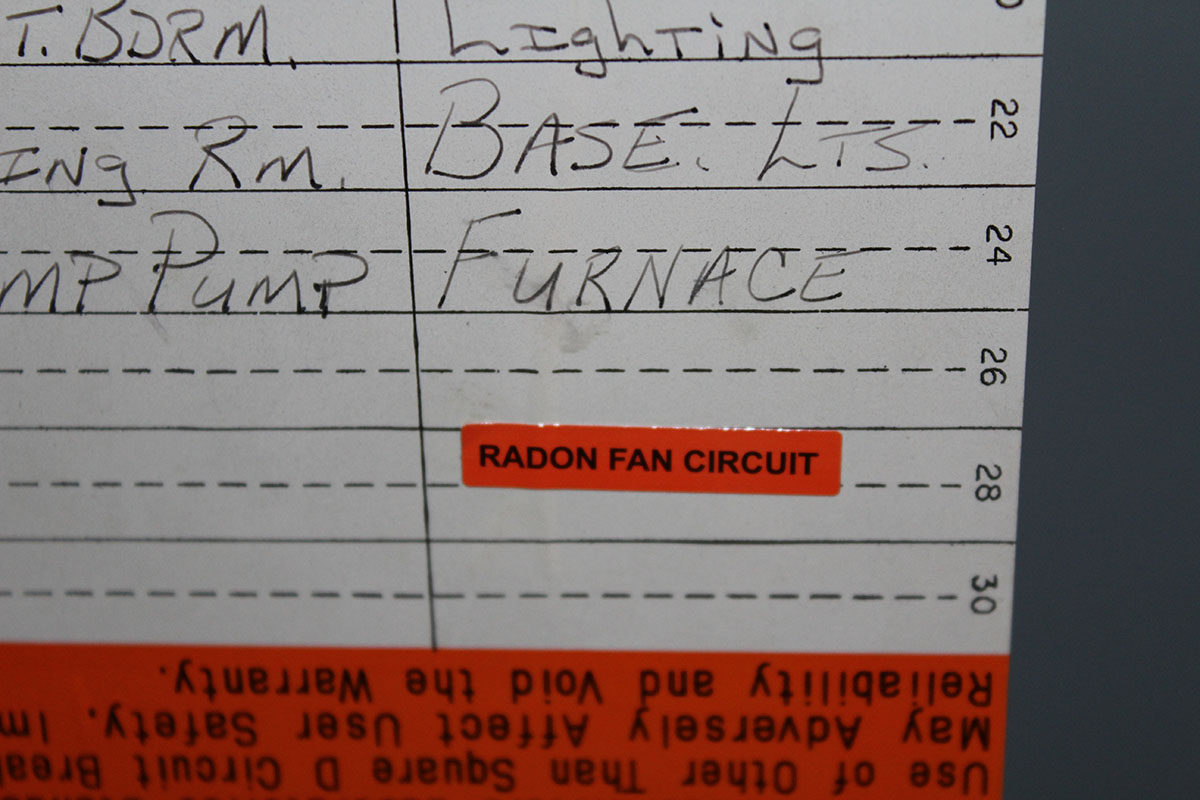 T. BDRM. Lighting
22
ING RM. BASE. LTS.
24
MP PUMP FURNACE
26
RADON FAN CIRCUIT
28
30
Use of Other Than Square D Circuit Brea
May Adversely Affect User Safety, Im
Reliability and Void the Warranty.